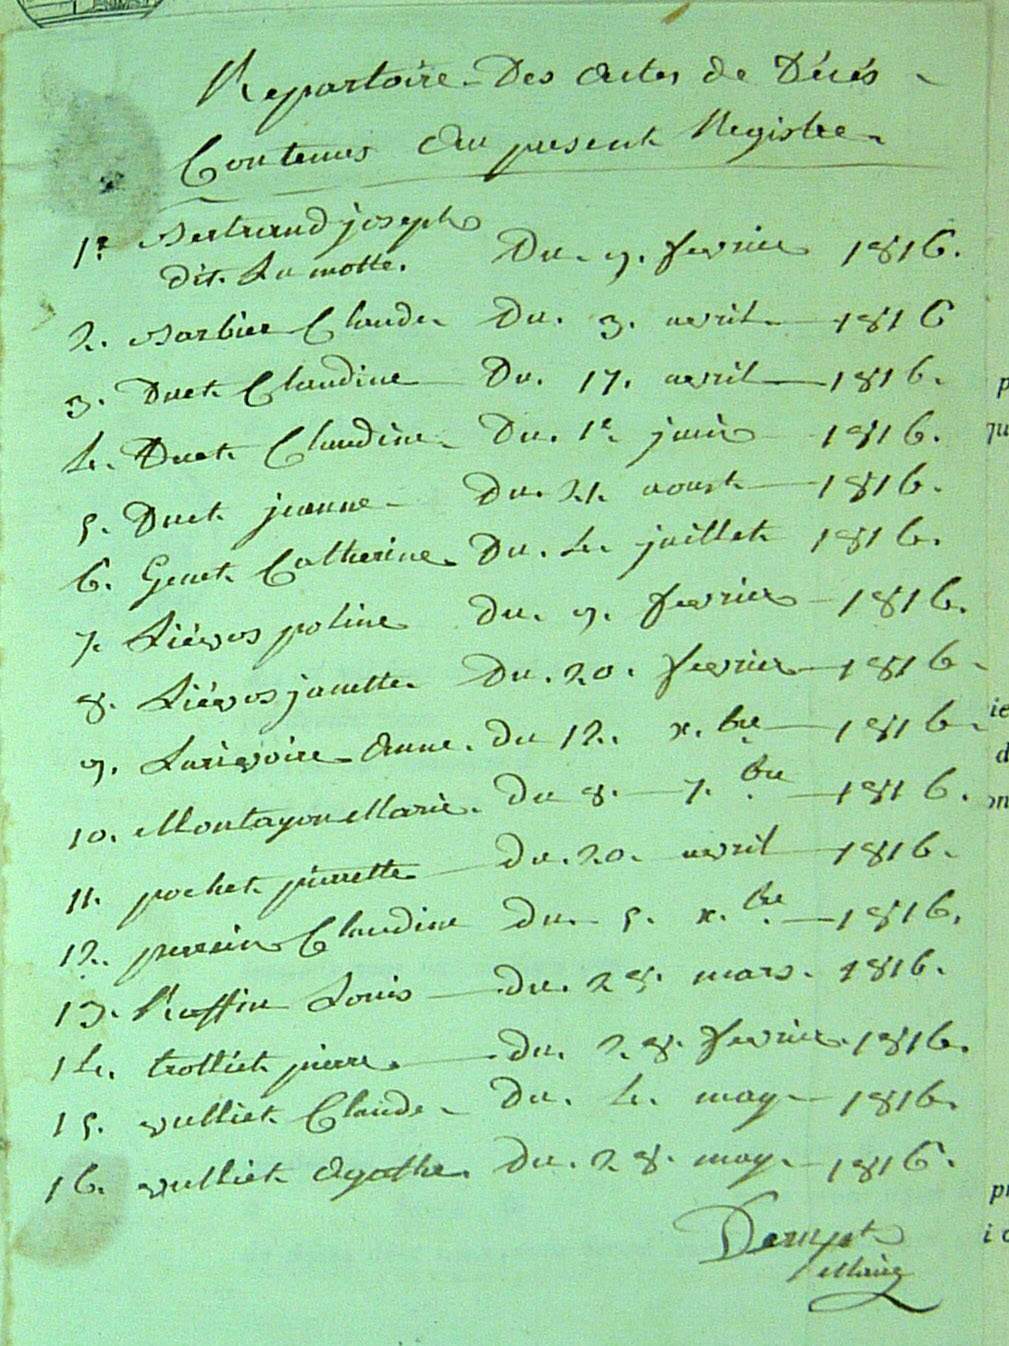 Repertoire Des actes de Décés
Contenus Au present Registre
1r. Bertrand joseph
dit La motte. Du 9. fevrier 1816.
2. Barbier Claude Du. 3. avril 1816
3. Duet Claudine Du. 17. avril 1816.
4. Duet Claudine Du. 1r. juin 1816.
5. Duet jeanne Du. 21. aoust 1816.
6. Genet Catherine Du. 4. juillet 1816.
7. Liévos poline du. 9. fevrier 1816.
8. Liévos janette Du. 20. fevrier 1816.
9. Larivoire Anne. du 12. x.bre 1816.
10. Montagon Marie. du 8. 7.bre 1816.
11. pochet pierrette du. 20. avril 1816.
12. perrin Claudine du 5. x.bre 1816.
13. Ruffin Louis du. 28. mars. 1816.
14. trolliet pierre du. 28. fevrier 1816.
15. vulliet Claude Du. 4. may 1816.
16. vulliet Agathe. Du. 28. may 1816.
Maire